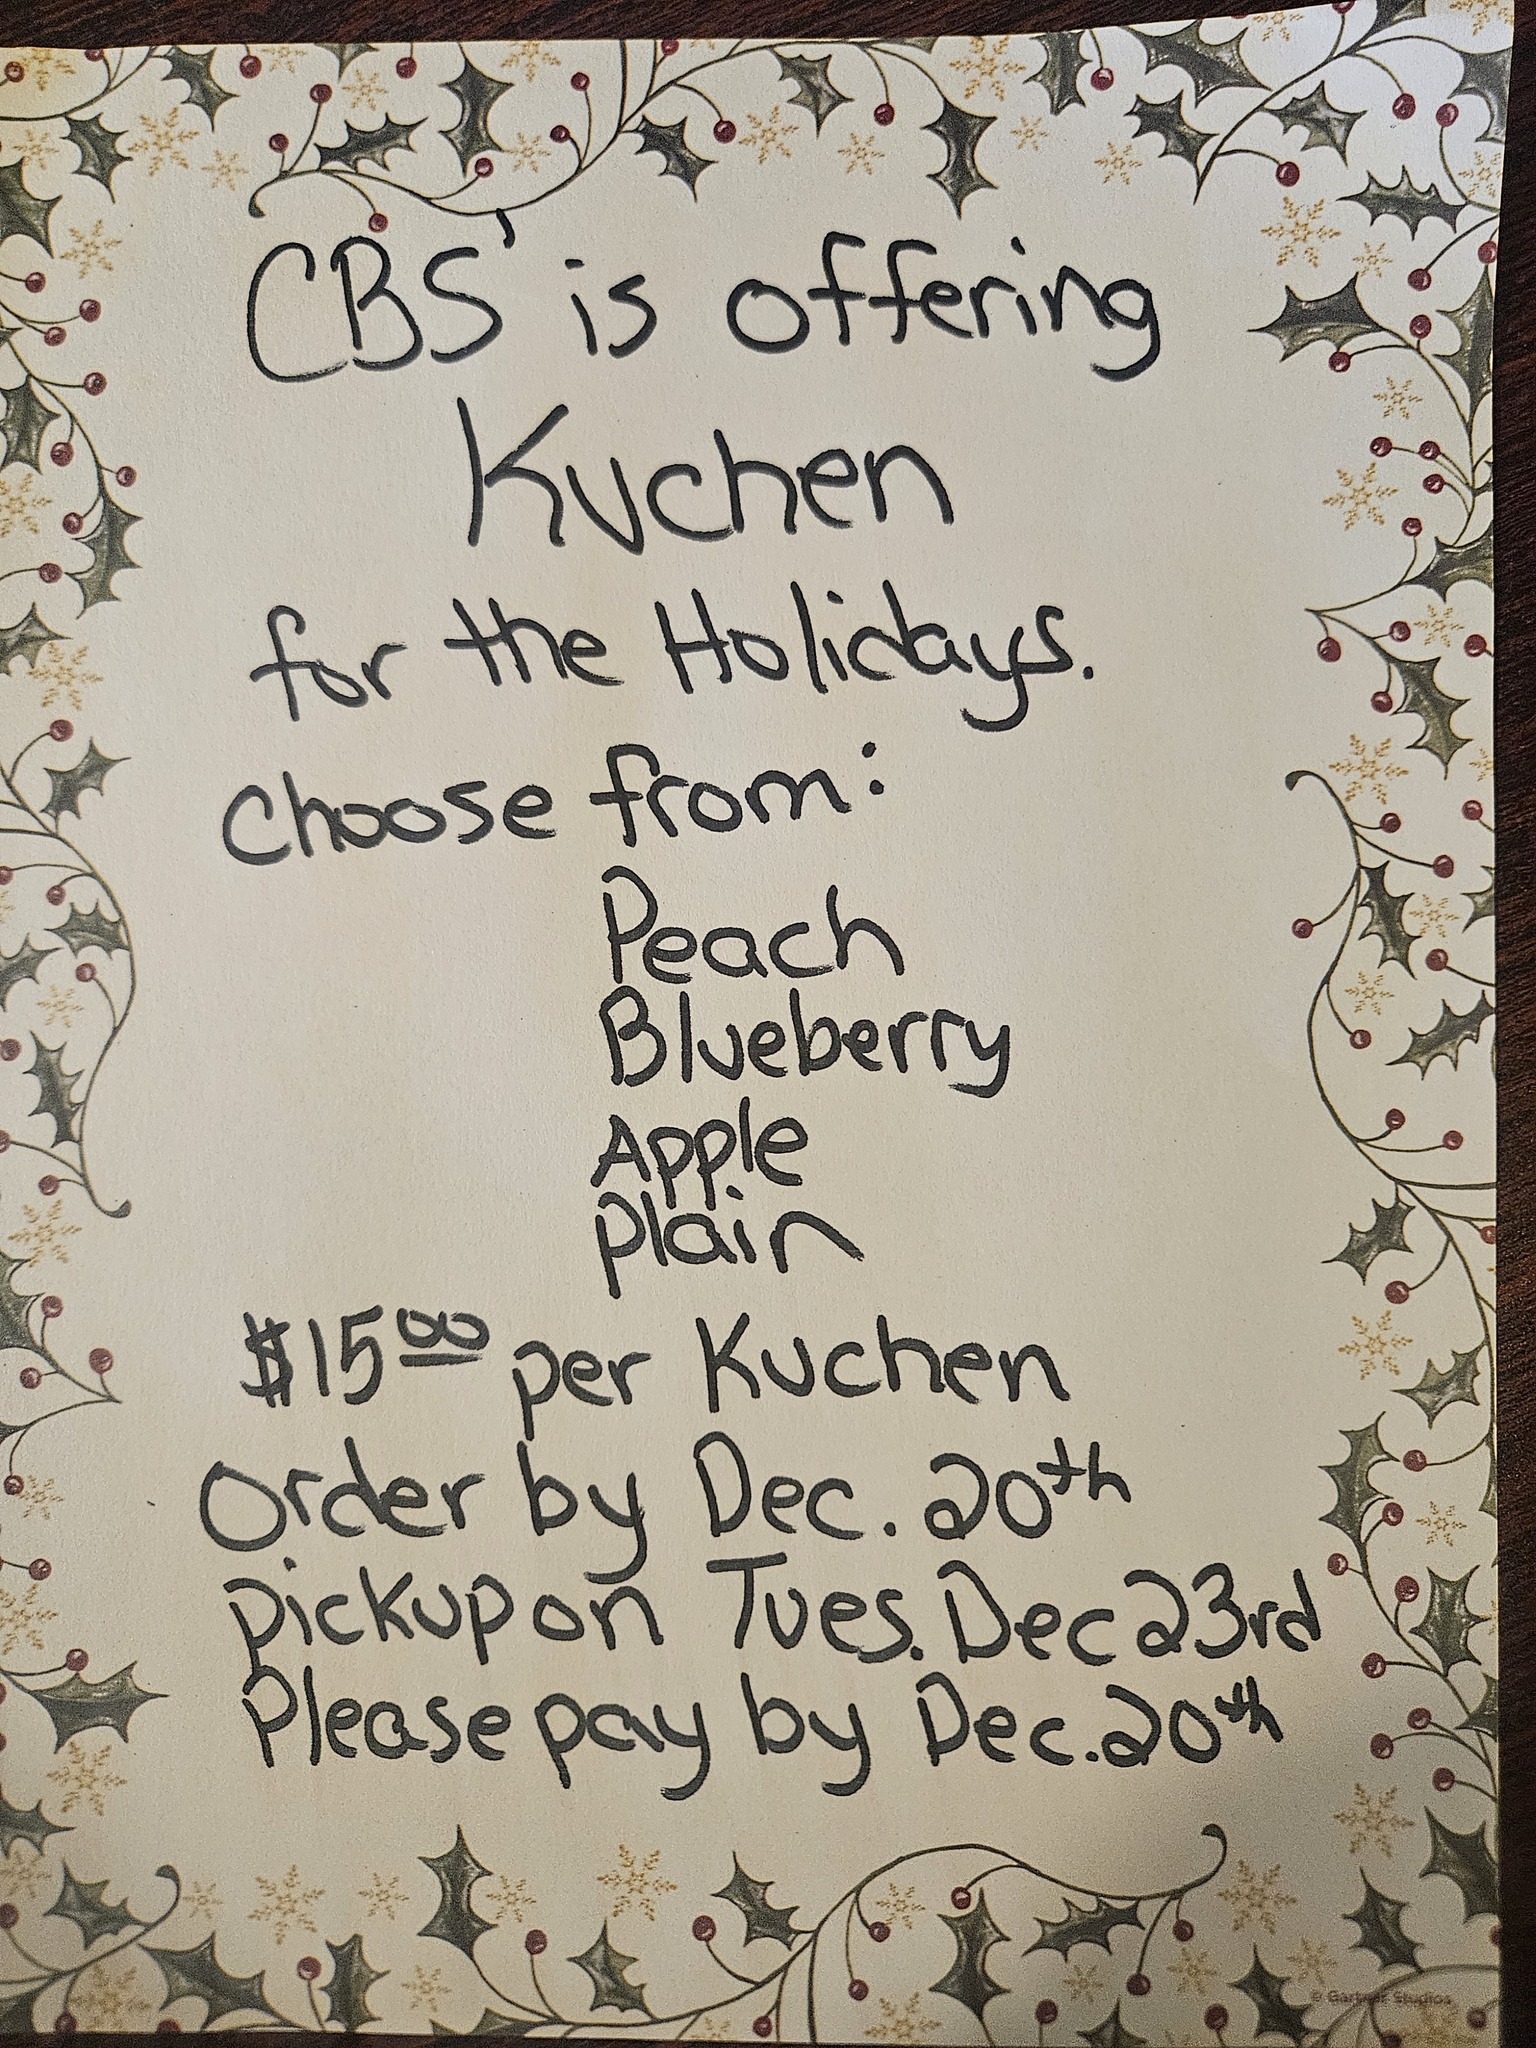 CBS' is offering
Kuchen
for the Holidays.
Choose from:
Peach
Blueberry
Apple
Plain
$15⁰⁰ per Kuchen
Order by Dec. 20th
pickup on Tues. Dec 23rd
Please pay by Dec. 20th
© Gartner Studios